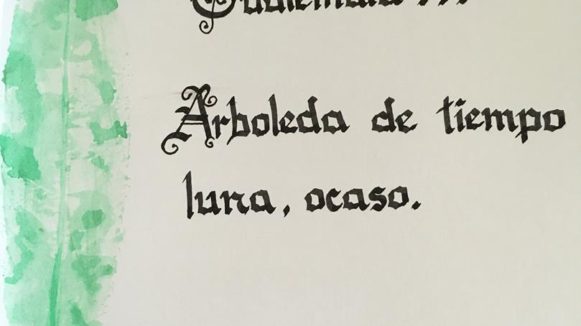 Guatemala ...
Arboleda de tiempo
luna, ocaso.